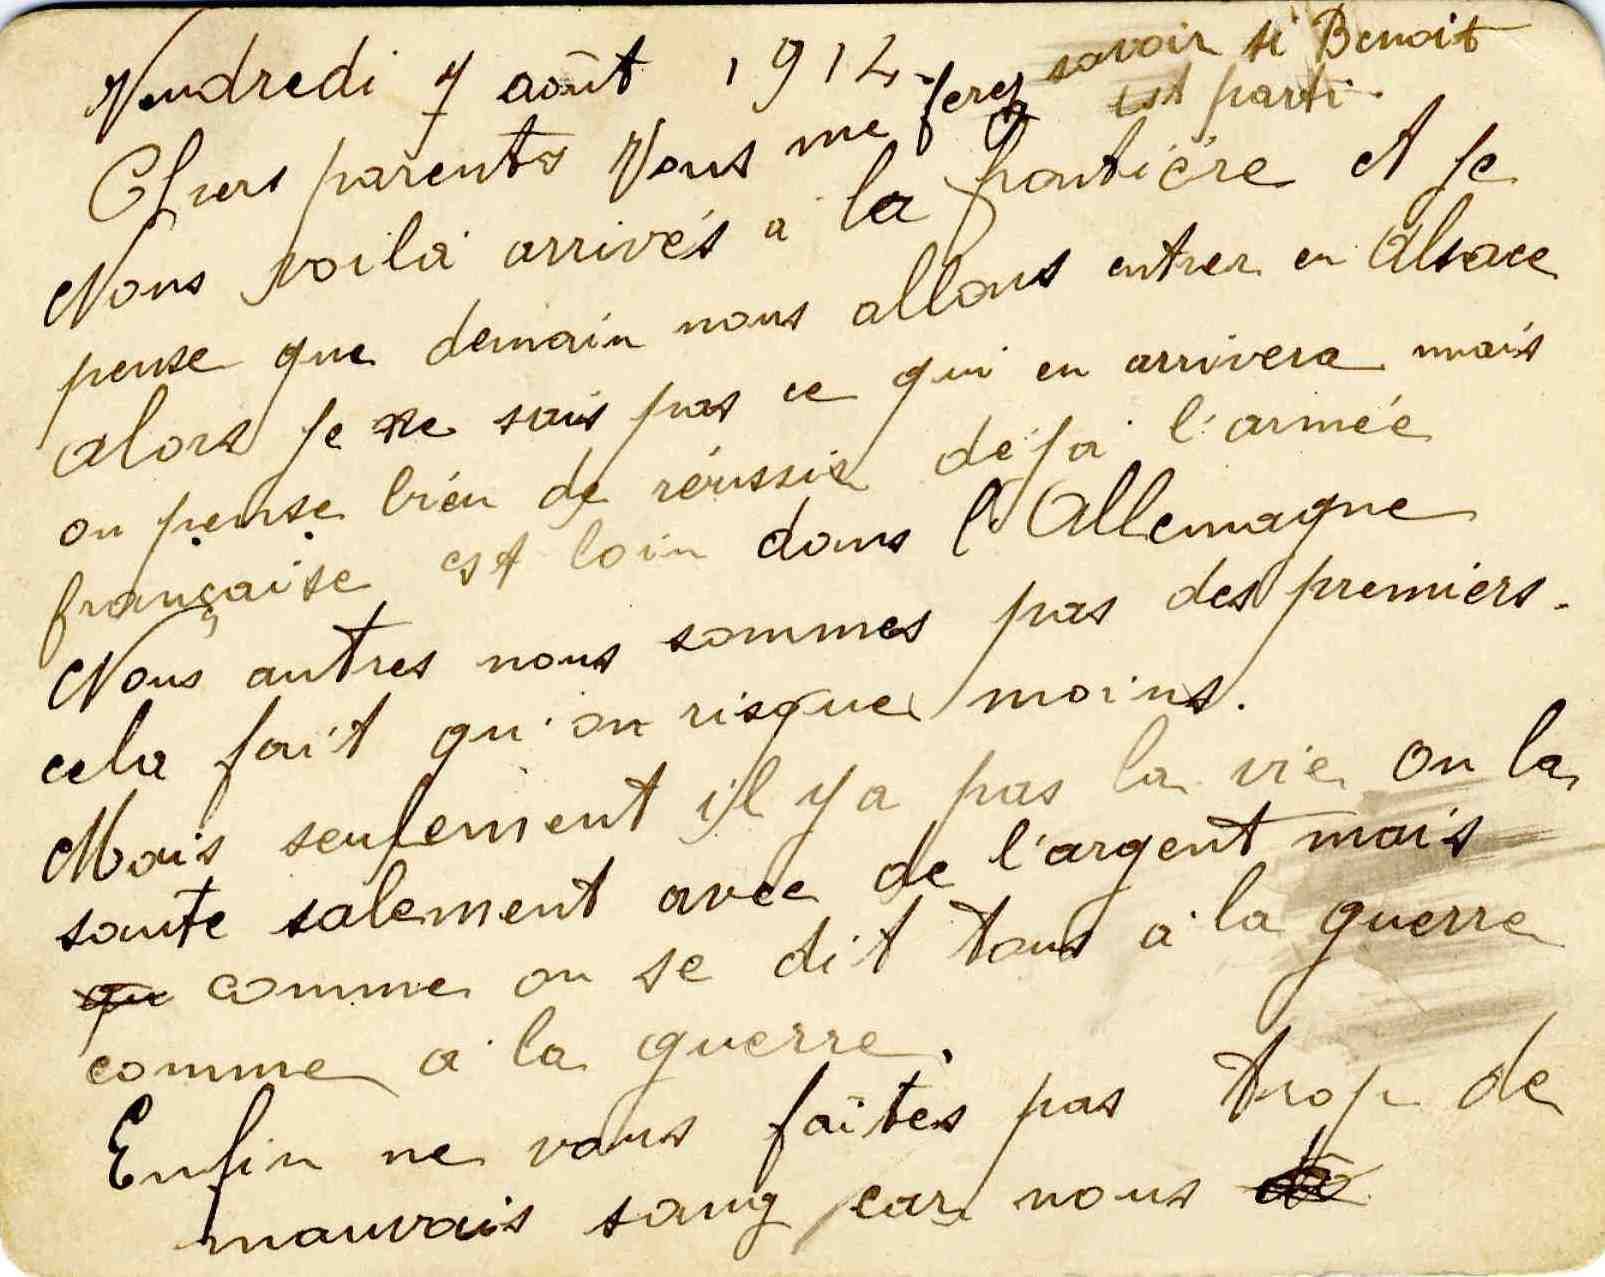 Vendredi 7 août 1914.
Chers parents Vous me ferez savoir si Benoit
est parti.
Nous voilà arrivés à la frontière et je
pense que demain nous allons entrer en Alsace
alors je ne sais pas ce qui en arrivera mais
on pense bien de réussir déjà l'armée
française est loin dans l'Allemagne
Nous autres nous sommes pas des premiers.
cela fait qu'on risque moins.
Mais seulement il y a pas la vie on la
saute salement avec de l'argent mais
comme on se dit tous à la guerre
comme à la guerre.
Enfin ne vous faîtes pas trop de
mauvais sang car nous